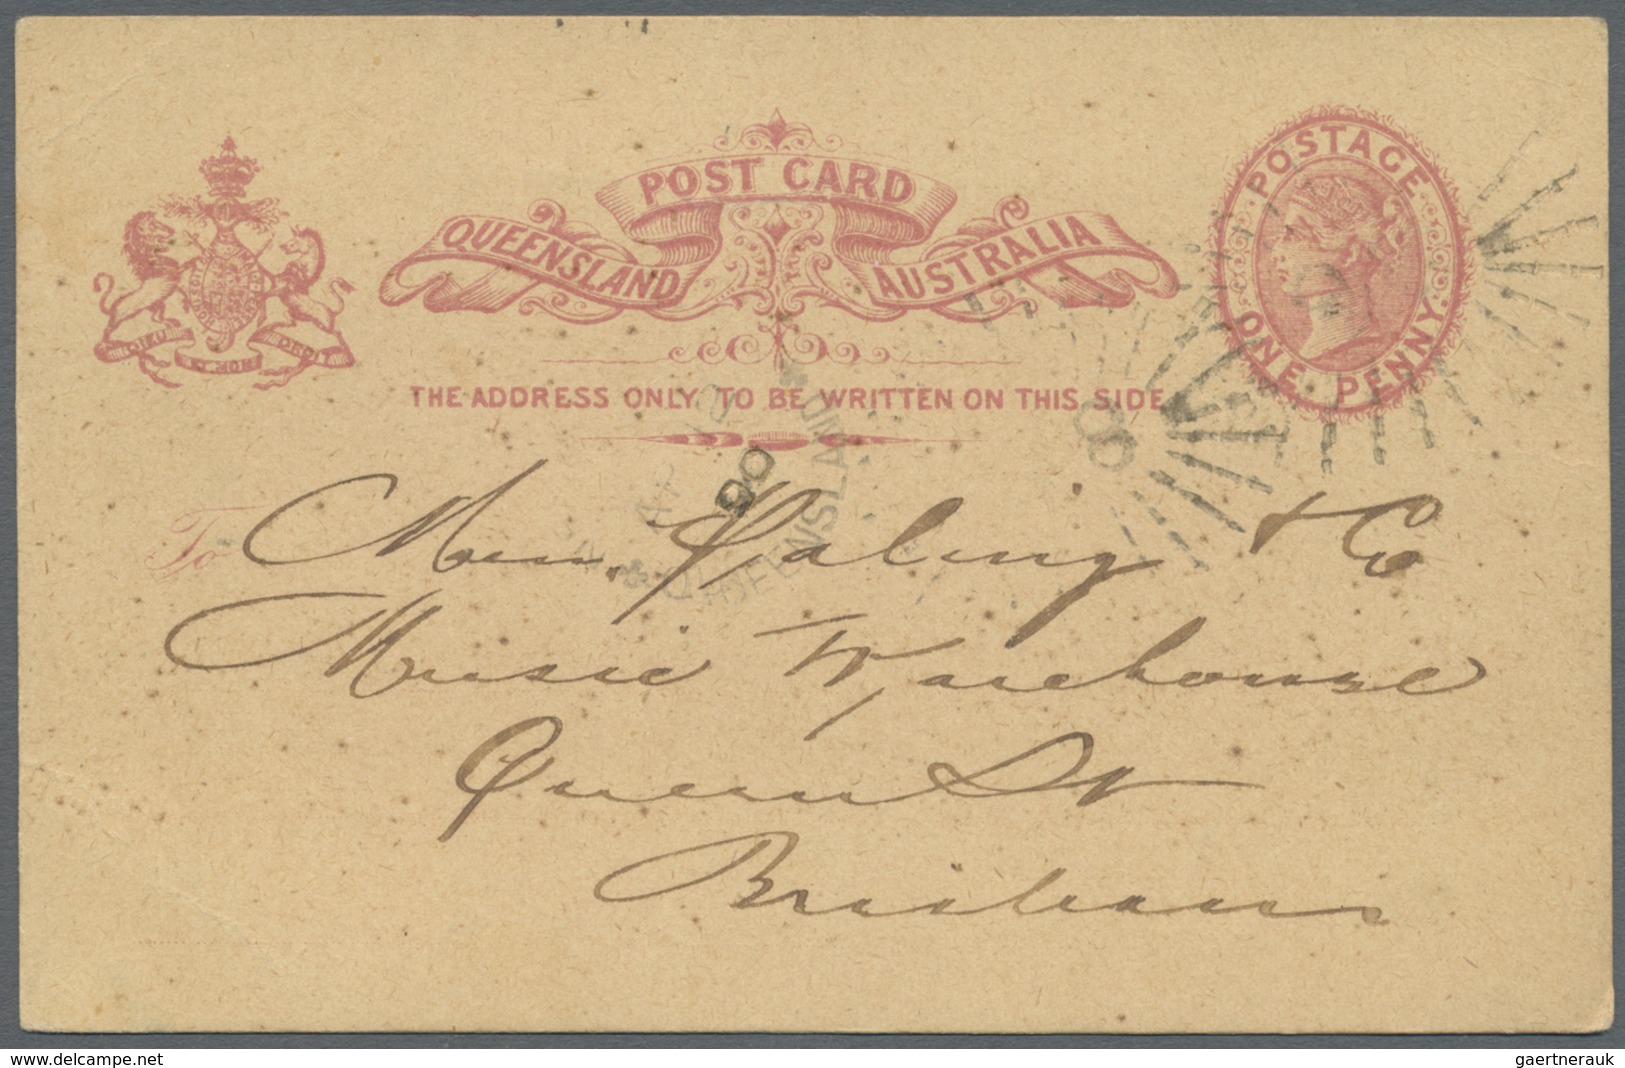 POST CARD
QUEENSLAND AUSTRALIA
POSTAGE
ONE PENNY
DIEU ET MON DROIT
THE ADDRESS ONLY TO BE WRITTEN ON THIS SIDE
AP 10
90
QUEENSLAND
To Messrs. Paling & Co
Music Warehouse
Queen St
Brisbane
www.delcampe.net
gaertnerauk